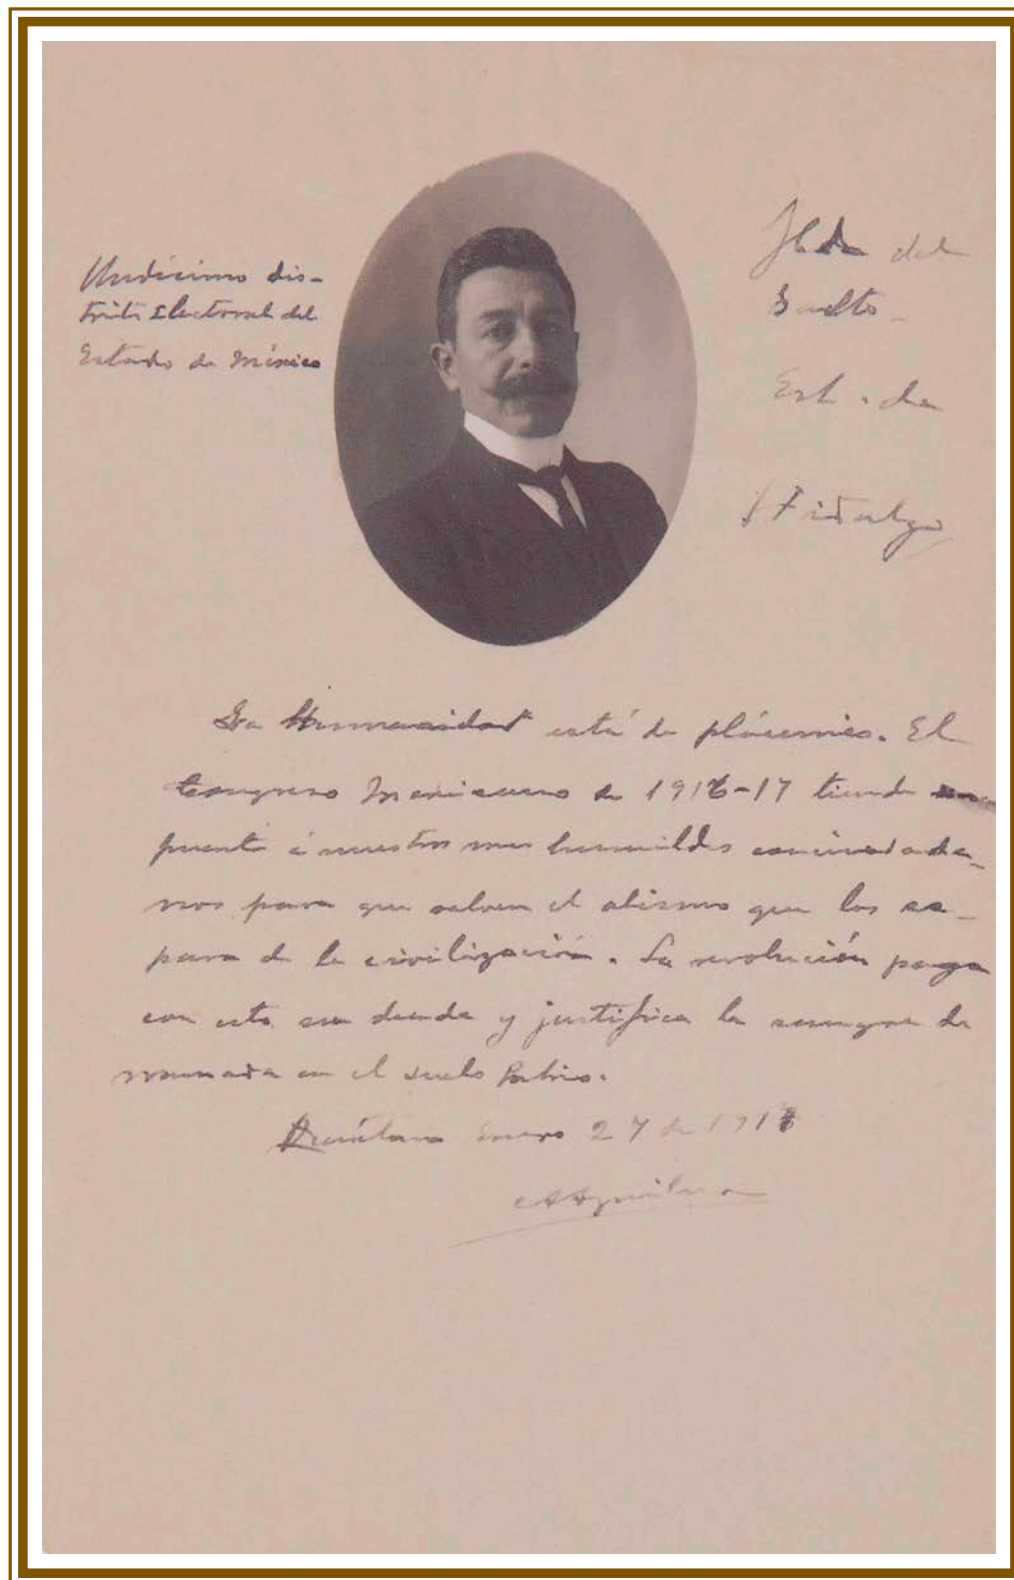 Undécimo dis-
trito Electoral del
Estado de México
Hda del
Salto -
Est. de
Hidalgo
La Humanidad está de plácemes. El
Congreso Mexicano de 1916-17 tiende un
puente á nuestros mas humildes conciudada-
nos para que salven el abismo que los se-
para de la civilización. La revolución paga
con esto su deuda y justifica la sangre de
rramada en el suelo Patrio.
Querétaro Enero 27 de 1917
A Aguilar